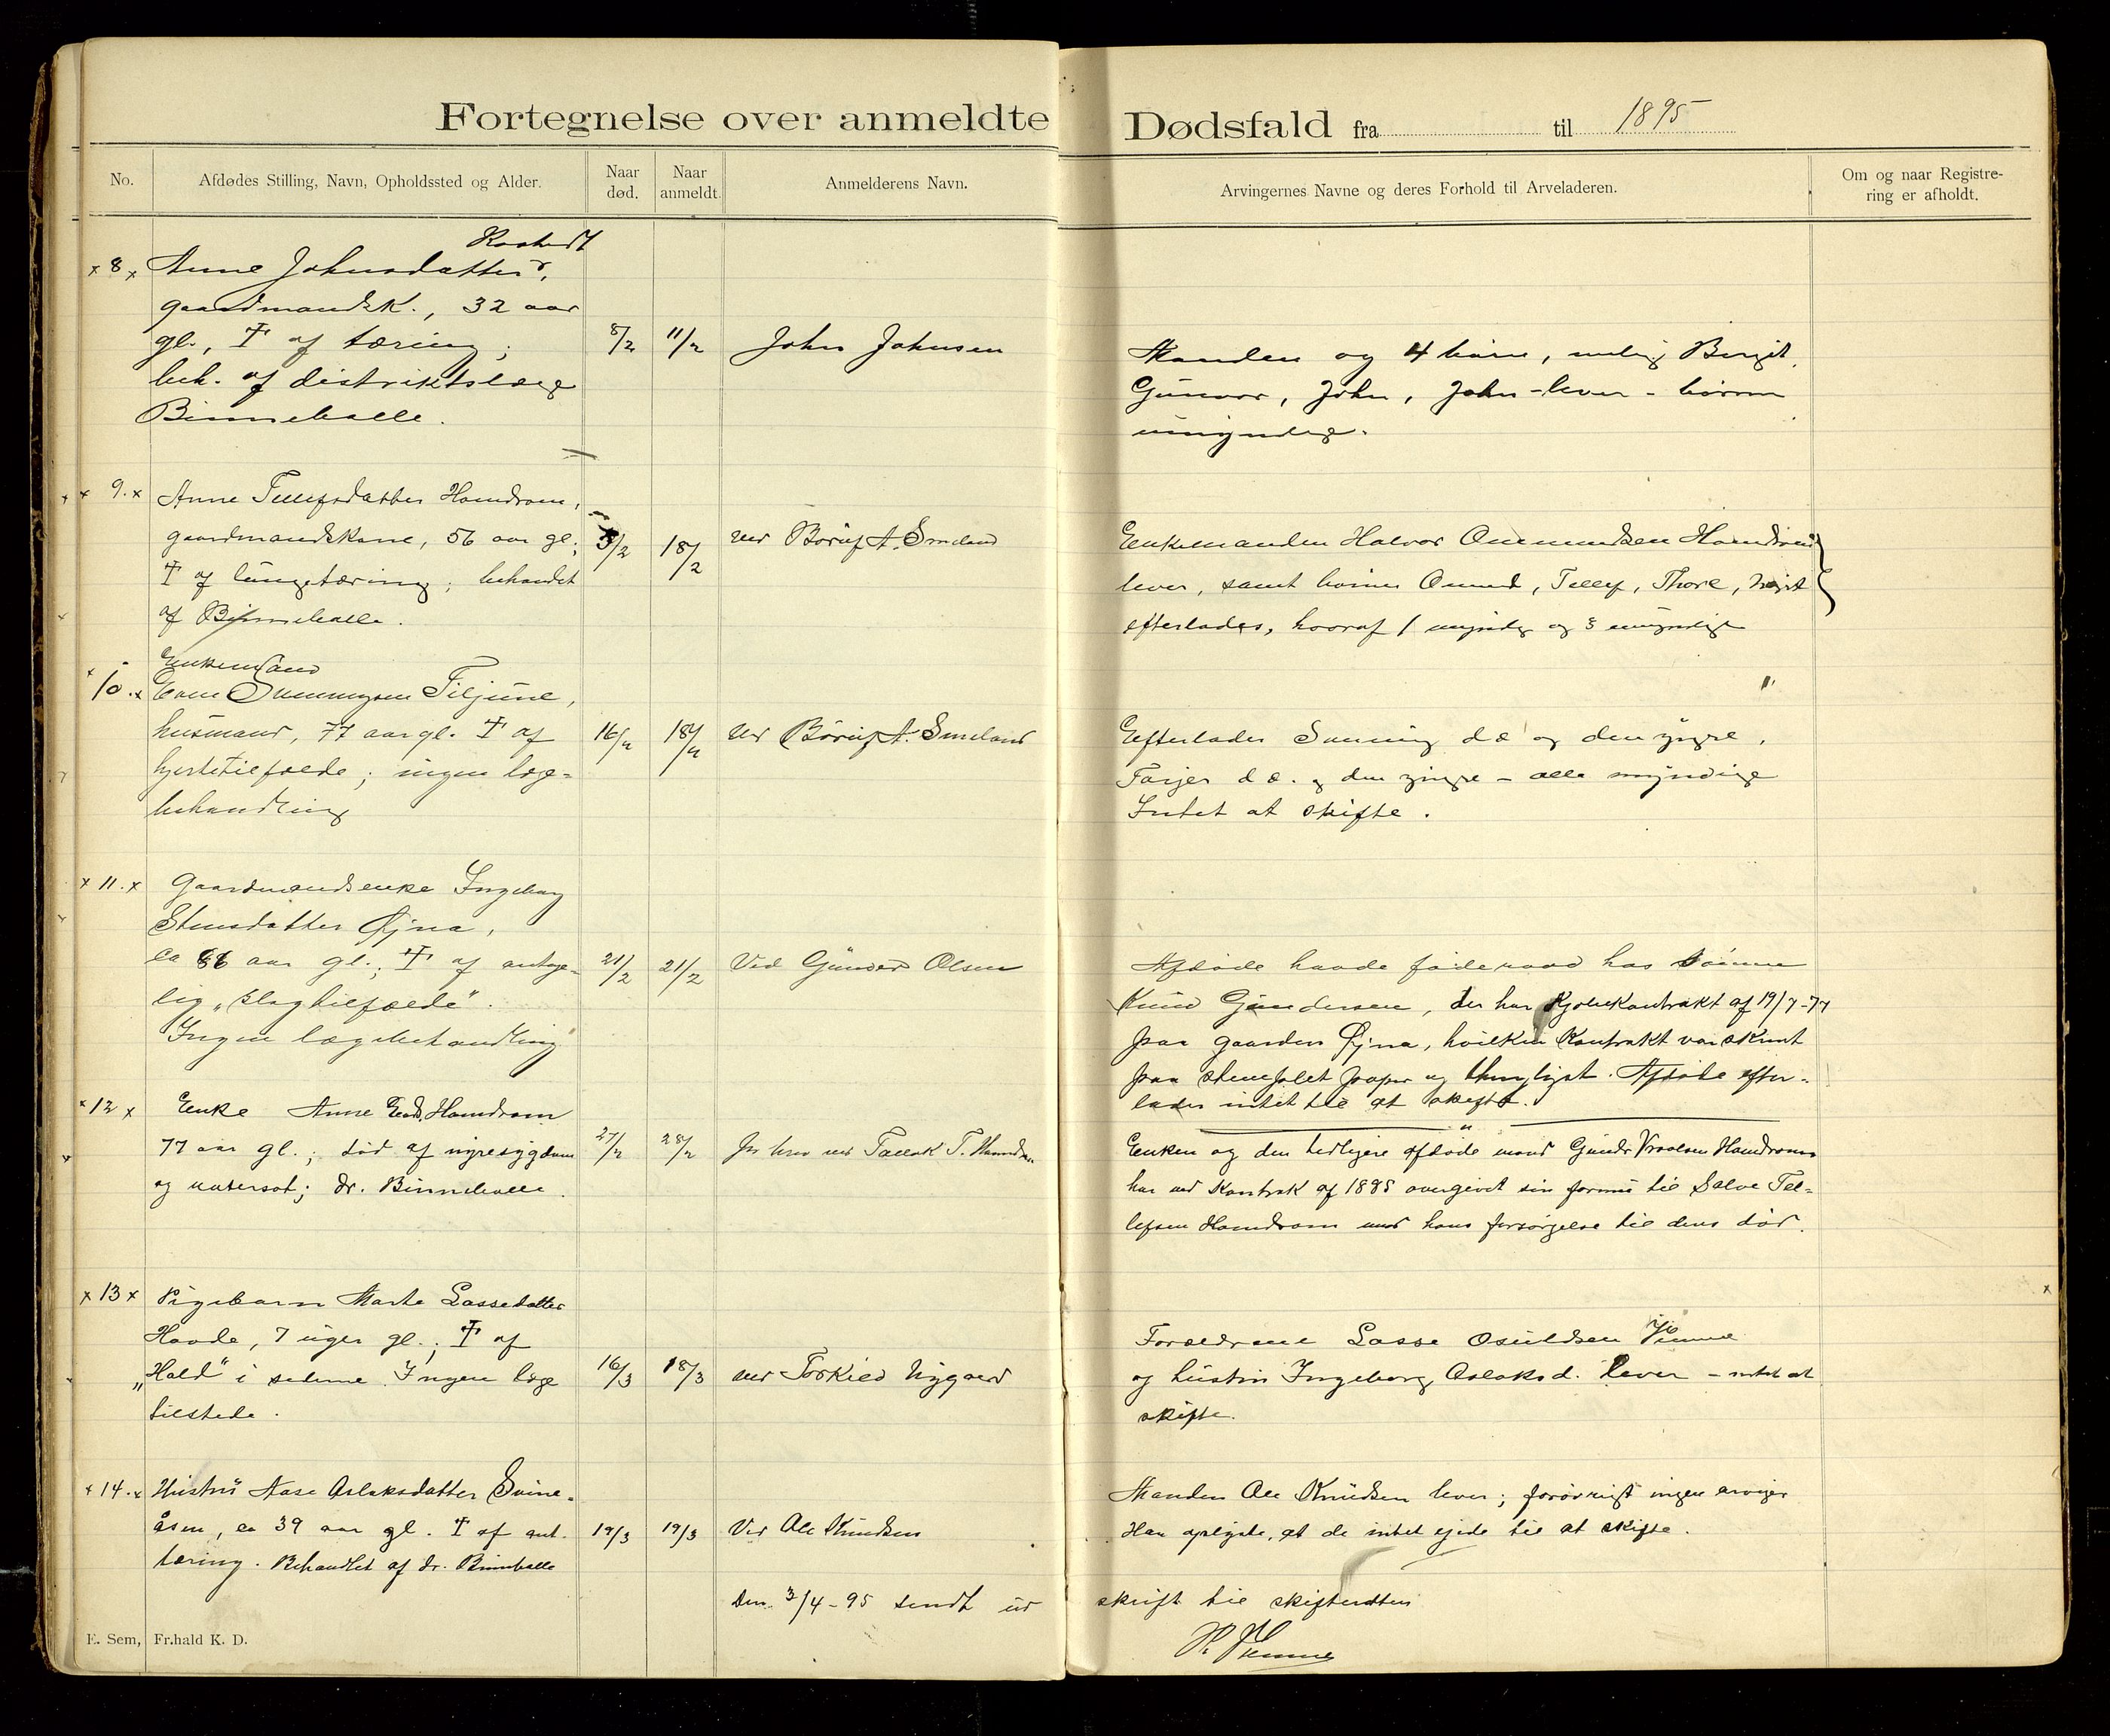 Fortegnelse over anmeldte Dødsfald fra til 1895
No.
Afdødes Stilling, Navn, Opholdssted og Alder.
Naar død.
Naar anmeldt.
Anmelderens Navn.
Arvingernes Navne og deres Forhold til Arveladeren.
Om og naar Registre-
ring er afholdt.
x 8 x Anne Johnsdatter
gaardmandsk., 32 aar
gl., † af tæring; 8/2 11/2 John Johnsen
beh. af distriktslæge
Binneballe.
Manden og 4 børn, nemlig Bergit,
Gunvor, John, John - lever - børnene
umyndige.
x 9. x Anne Tellefsdatter Hamdrom,
gaardmandskone, 56 aar gl.; 5/2 18/2 ved Børuf A. Smeland
† af lungetæring; behandlet
af Binneballe.
Enkemanden Halvor Ommundsen Hamdrom
lever, samt børnene Omund, Tellef, Thore,
efterlades, hvoraf 1 myndig og 3 umyndige
Enkemand
10. x Even Sunningsen Tiljune,
husmand, 77 aar gl. † af 16/2 18/2 ved Børuf A. Smeland
hjertetilfælde; ingen læge-
behandling
Efterlader Sunning d æ og den yngre,
Tarjer d æ. og den yngre - alle myndige
Intet at skifte.
x 11. x Gaardmandsenke Ingeborg
Stensdatter Øjna,
ca 86 aar gl.; † af antage- 21/2 21/2 Ved Gunder Olsen
lig "slagtilfælde".
Ingen lægebehandling
Afdøde havde føderaad hos sønnen
Knud Gundersen, der har Kjøbekontrakt af 19/7-77
paa gaarden Øjna, hvilken Kontrakt var skrevet
paa stemplet papir og thinglyst. Afdøde efter-
lader intet til at skifte.
x 12 x Enke Anne Hamdrom
77 aar gl.; død af nyresygdom 27/2 28/2 ved Tallak T. Hamdrom
og vatersot; dr. Binneballe.
Enken og den tidligere afdøde mand Gundr Vraalsen Hamdrom
har ved Kontrak af 1885 overgivet sin formue til Salve Tel-
lefsen Hamdrom mod hans forsørgelse til dens død.
x 13 x Pigebarn Marte Lassedatter
Haade, 7 uger gl.; † af
"Hold" i siderne. Ingen læge 16/3 18/3 ved Torkild Nygaard
tilstede.
Forældrene Lasse Osuldsen
og hustru Ingeborg Aslaksd. lever - intet at
skifte.
x 14. x Hustru Aase Aslaksdatter Svine-
åsen, ca 39 aar gl. † af ant. 19/3 19/3 Ved Ole Knudsen
tæring. Behandlet af dr. Binneballe
Manden Ole Knudsen lever; forøvrigt ingen arvinger
Han oplyste, at de intet ejede til at skifte.
Den 3/4-95 sendt ud skrift til skifteretten
E. Sem, Fr.hald K. D.